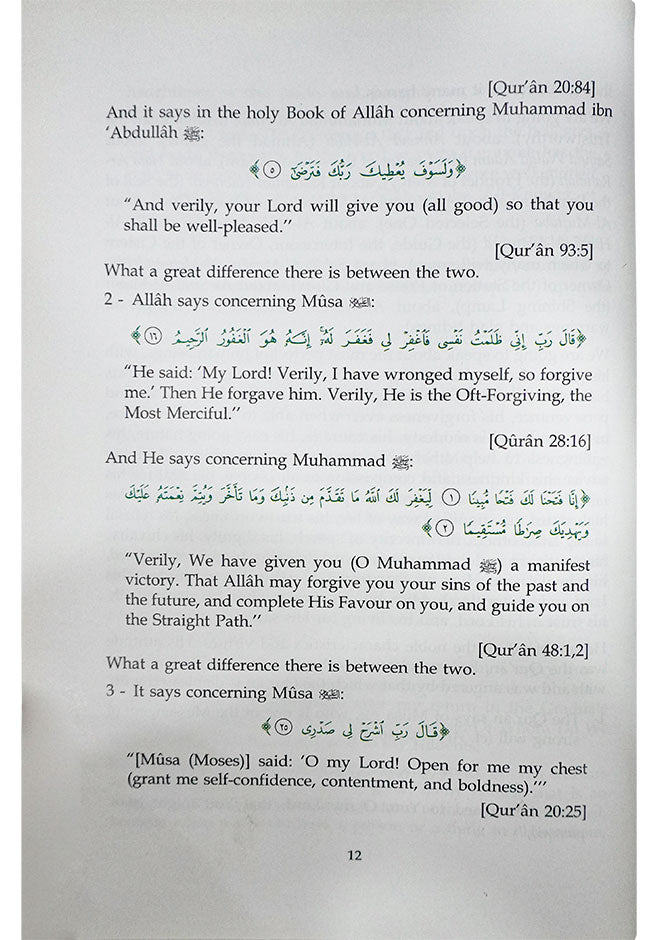 [Qur'ân 20:84]
And it says in the holy Book of Allâh concerning Muhammad ibn
'Abdullâh ﷺ:
﴿وَلَسَوْفَ يُعْطِيكَ رَبُّكَ فَتَرْضَىٰٓ ٥﴾
"And verily, your Lord will give you (all good) so that you
shall be well-pleased."
[Qur'ân 93:5]
What a great difference there is between the two.
2 - Allâh says concerning Mûsa:
﴿قَالَ رَبِّ إِنِّى ظَلَمْتُ نَفْسِى فَٱغْفِرْ لِى فَغَفَرَ لَهُۥٓ إِنَّهُۥ هُوَ ٱلْغَفُورُ ٱلرَّحِيمُ ١٦﴾
"He said: 'My Lord! Verily, I have wronged myself, so forgive
me.' Then He forgave him. Verily, He is the Oft-Forgiving, the
Most Merciful."
[Qûrân 28:16]
And He says concerning Muhammad ﷺ:
﴿إِنَّا فَتَحْنَا لَكَ فَتْحًا مُّبِينًا ١ لِّيَغْفِرَ لَكَ ٱللَّهُ مَا تَقَدَّمَ مِن ذَنۢبِكَ وَمَا تَأَخَّرَ وَيُتِمَّ نِعْمَتَهُۥ عَلَيْكَ
وَيَهْدِيَكَ صِرَٰطًا مُّسْتَقِيمًا ٢﴾
"Verily, We have given you (O Muhammad ﷺ) a manifest
victory. That Allâh may forgive you your sins of the past and
the future, and complete His Favour on you, and guide you on
the Straight Path."
[Qur'ân 48:1,2]
What a great difference there is between the two.
3 - It says concerning Mûsa:
﴿قَالَ رَبِّ ٱشْرَحْ لِى صَدْرِى ٢٥﴾
"[Mûsa (Moses)] said: 'O my Lord! Open for me my chest
(grant me self-confidence, contentment, and boldness).'"
[Qur'ân 20:25]
12